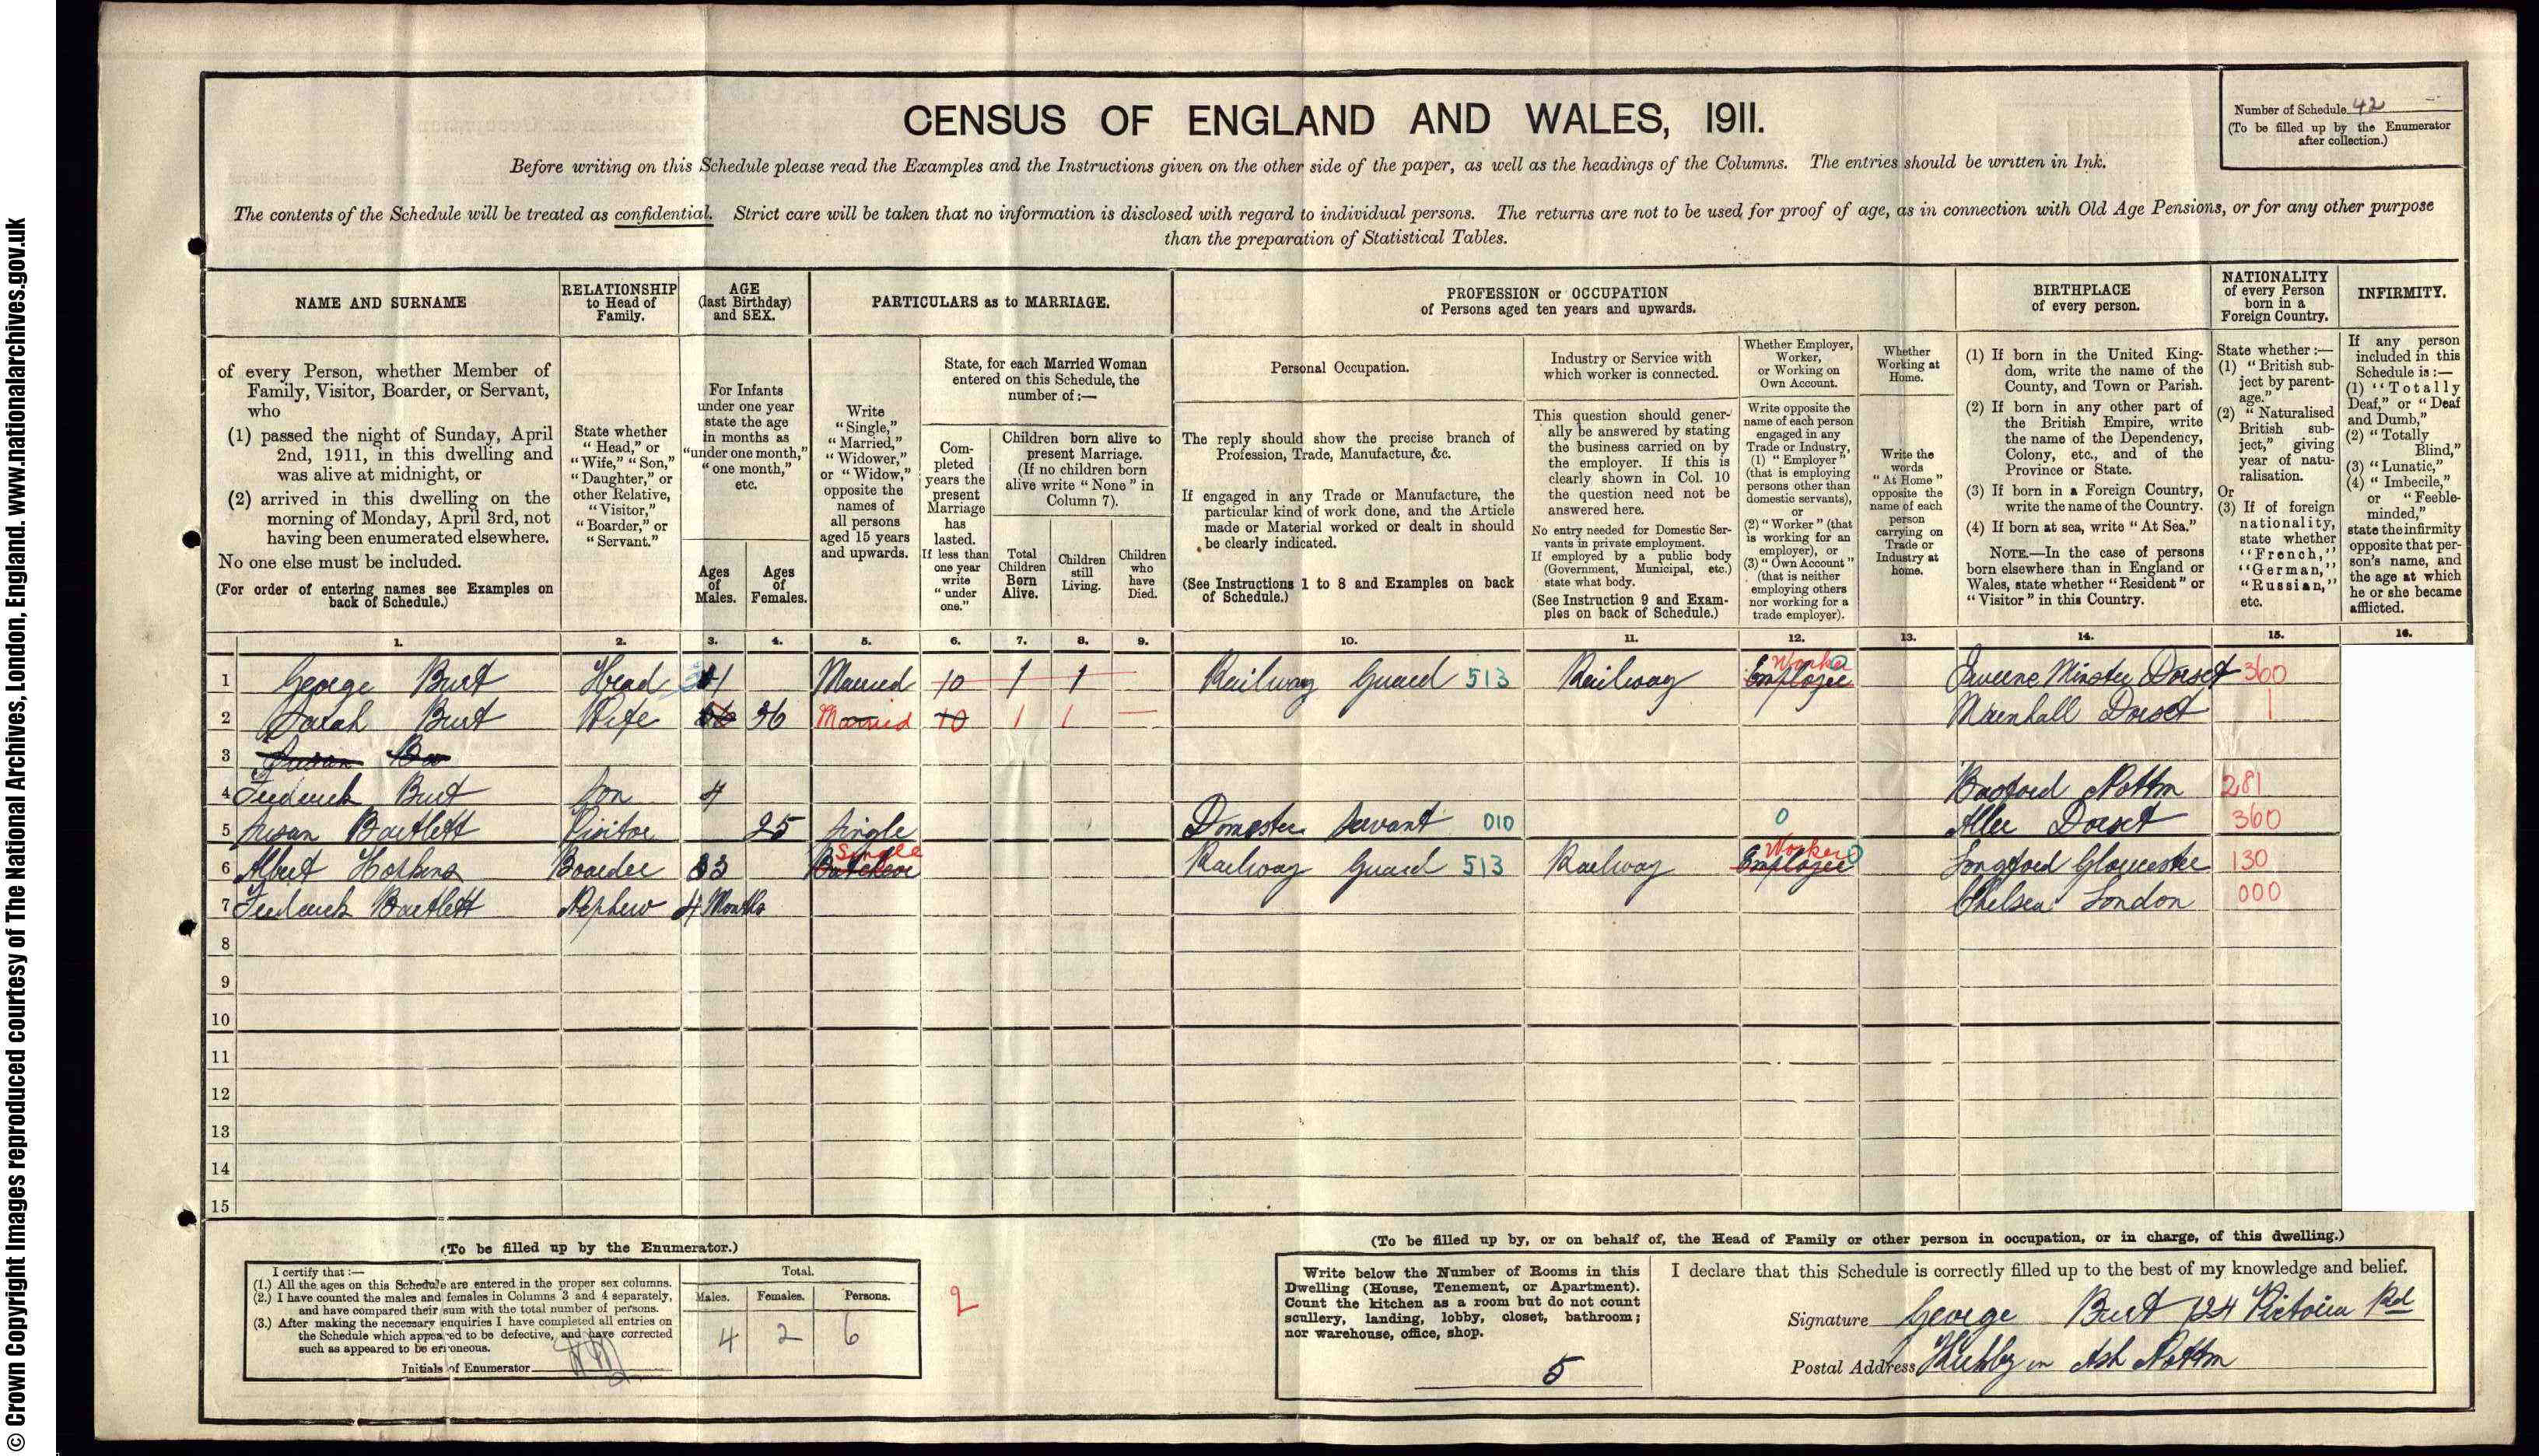 © Crown Copyright Images reproduced courtesy of The National Archives, London, England. www.nationalarchives.gov.uk
CENSUS OF ENGLAND AND WALES, 1911.
Number of Schedule 42
(To be filled up by the Enumerator
after collection.)
Before writing on this Schedule please read the Examples and the Instructions given on the other side of the paper, as well as the headings of the Columns. The entries should be written in Ink.
The contents of the Schedule will be treated as confidential. Strict care will be taken that no information is disclosed with regard to individual persons. The returns are not to be used for proof of age, as in connection with Old Age Pensions, or for any other purpose
than the preparation of Statistical Tables.
NAME AND SURNAME
of every Person, whether Member of
Family, Visitor, Boarder, or Servant,
who
(1) passed the night of Sunday, April
2nd, 1911, in this dwelling and
was alive at midnight, or
(2) arrived in this dwelling on the
morning of Monday, April 3rd, not
having been enumerated elsewhere.
No one else must be included.
(For order of entering names see Examples on
back of Schedule.)
RELATIONSHIP
to Head of
Family.
State whether
"Head," or
"Wife," "Son,"
"Daughter," or
other Relative,
"Visitor,"
"Boarder," or
"Servant."
AGE
(last Birthday)
and SEX.
For Infants
under one year
state the age
in months as
"under one month,"
"one month,"
etc.
Ages
of
Males.
Ages
of
Females.
PARTICULARS as to MARRIAGE.
Write
"Single,"
"Married,"
"Widower,"
or "Widow,"
opposite the
names of
all persons
aged 15 years
and upwards.
State, for each Married Woman
entered on this Schedule, the
number of :—
Com-
pleted
years the
present
Marriage
has
lasted.
If less than
one year
write
"under
one."
Children born alive to
present Marriage.
(If no children born
alive write "None" in
Column 7).
Total
Children
Born
Alive.
Children
still
Living.
Children
who
have
Died.
PROFESSION or OCCUPATION
of Persons aged ten years and upwards.
Personal Occupation.
The reply should show the precise branch of
Profession, Trade, Manufacture, &c.
If engaged in any Trade or Manufacture, the
particular kind of work done, and the Article
made or Material worked or dealt in should
be clearly indicated.
(See Instructions 1 to 8 and Examples on back
of Schedule.)
Industry or Service with
which worker is connected.
This question should gener-
ally be answered by stating
the business carried on by
the employer. If this is
clearly shown in Col. 10
the question need not be
answered here.
No entry needed for Domestic Ser-
vants in private employment.
If employed by a public body
(Government, Municipal, etc.)
state what body.
(See Instruction 9 and Exam-
ples on back of Schedule.)
Whether Employer,
Worker,
or Working on
Own Account.
Write opposite the
name of each person
engaged in any
Trade or Industry,
(1) "Employer"
(that is employing
persons other than
domestic servants),
or
(2) "Worker" (that
is working for an
employer), or
(3) "Own Account"
(that is neither
employing others
nor working for a
trade employer).
Whether
Working at
Home.
Write the
words
"At Home"
opposite the
name of each
person
carrying on
Trade or
Industry at
home.
BIRTHPLACE
of every person.
(1) If born in the United King-
dom, write the name of the
County, and Town or Parish.
(2) If born in any other part of
the British Empire, write
the name of the Dependency,
Colony, etc., and of the
Province or State.
(3) If born in a Foreign Country,
write the name of the Country.
(4) If born at sea, write "At Sea."
NOTE.—In the case of persons
born elsewhere than in England or
Wales, state whether "Resident" or
"Visitor" in this Country.
NATIONALITY
of every Person
born in a
Foreign Country.
State whether :—
(1) "British sub-
ject by parent-
age."
(2) "Naturalised
British sub-
ject," giving
year of natu-
ralisation.
Or
(3) If of foreign
nationality,
state whether
"French,"
"German,"
"Russian,"
etc.
INFIRMITY.
If any person
included in this
Schedule is :—
(1) "Totally
Deaf," or "Deaf
and Dumb,"
(2) "Totally
Blind,"
(3) "Lunatic,"
(4) "Imbecile,"
or "Feeble-
minded,"
state the infirmity
opposite that per-
son's name, and
the age at which
he or she became
afflicted.
1. 2. 3. 4. 5. 6. 7. 8. 9. 10. 11. 12. 13. 14. 15. 16.
1 George Burt Head Married 10 1 1 Railway Guard 513 Railway Employee Worker Iwerne Minster Dorset 360
2 Sarah Burt Wife 36 36 Married 10 1 1 — Marnhall Dorset 1
3 Susan Bu
4 Frederick Burt Son 4 Basford Nottm 281
5 Susan Bartlett Visitor 25 Single Domestic Servant 010 0 Aller Dorset 360
6 Albert Hopkins Boarder 33 Batchelor Single Railway Guard 513 Railway Employee Worker 0 Longford Gloucester 130
7 Frederick Bartlett Nephew 4 Months Chelsea London 000
8
9
10
11
12
13
14
15
(To be filled up by the Enumerator.)
I certify that :—
(1.) All the ages on this Schedule are entered in the proper sex columns.
(2.) I have counted the males and females in Columns 3 and 4 separately,
and have compared their sum with the total number of persons.
(3.) After making the necessary enquiries I have completed all entries on
the Schedule which appeared to be defective, and have corrected
such as appeared to be erroneous.
Initials of Enumerator
Total.
Males. Females. Persons.
4 2 6
2
(To be filled up by, or on behalf of, the Head of Family or other person in occupation, or in charge, of this dwelling.)
Write below the Number of Rooms in this
Dwelling (House, Tenement, or Apartment).
Count the kitchen as a room but do not count
scullery, landing, lobby, closet, bathroom;
nor warehouse, office, shop.
5
I declare that this Schedule is correctly filled up to the best of my knowledge and belief.
Signature George Burt 124 Victoria Rd
Postal Address Kirkby in Ash Nottm